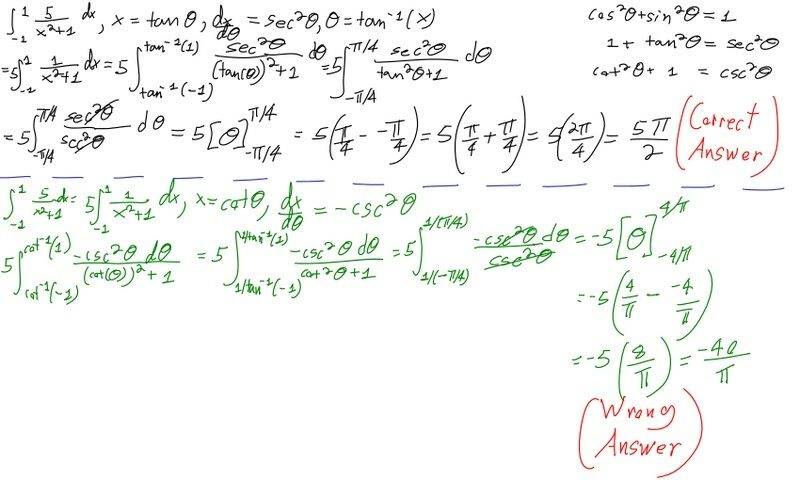 ∫_{-1}^{1} 5/(x²+1) dx, x = tanθ, dx/dθ = sec²θ, θ = tan⁻¹(x)
cos²θ + sin²θ = 1
1 + tan²θ = sec²θ
cot²θ + 1 = csc²θ
= 5∫_{-1}^{1} 1/(x²+1) dx = 5∫_{tan⁻¹(-1)}^{tan⁻¹(1)} sec²θ/((tan(θ))²+1) dθ = 5∫_{-π/4}^{π/4} sec²θ/(tan²θ+1) dθ
= 5∫_{-π/4}^{π/4} sec²θ/sec²θ dθ = 5[θ]_{-π/4}^{π/4} = 5(π/4 - -π/4) = 5(π/4 + π/4) = 5(2π/4) = 5π/2 (Correct
Answer)
∫_{-1}^{1} 5/(x²+1) dx = 5∫_{-1}^{1} 1/(x²+1) dx, x = cotθ, dx/dθ = -csc²θ
5∫_{cot⁻¹(-1)}^{cot⁻¹(1)} -csc²θ dθ/((cot(θ))²+1) = 5∫_{1/tan⁻¹(-1)}^{1/tan⁻¹(1)} -csc²θ dθ/(cot²θ+1) = 5∫_{1/(-π/4)}^{1/(π/4)} -csc²θ dθ/csc²θ = -5[θ]_{-4/π}^{4/π}
= -5(4/π - -4/π)
= -5(8/π) = -40/π
(Wrong
Answer)